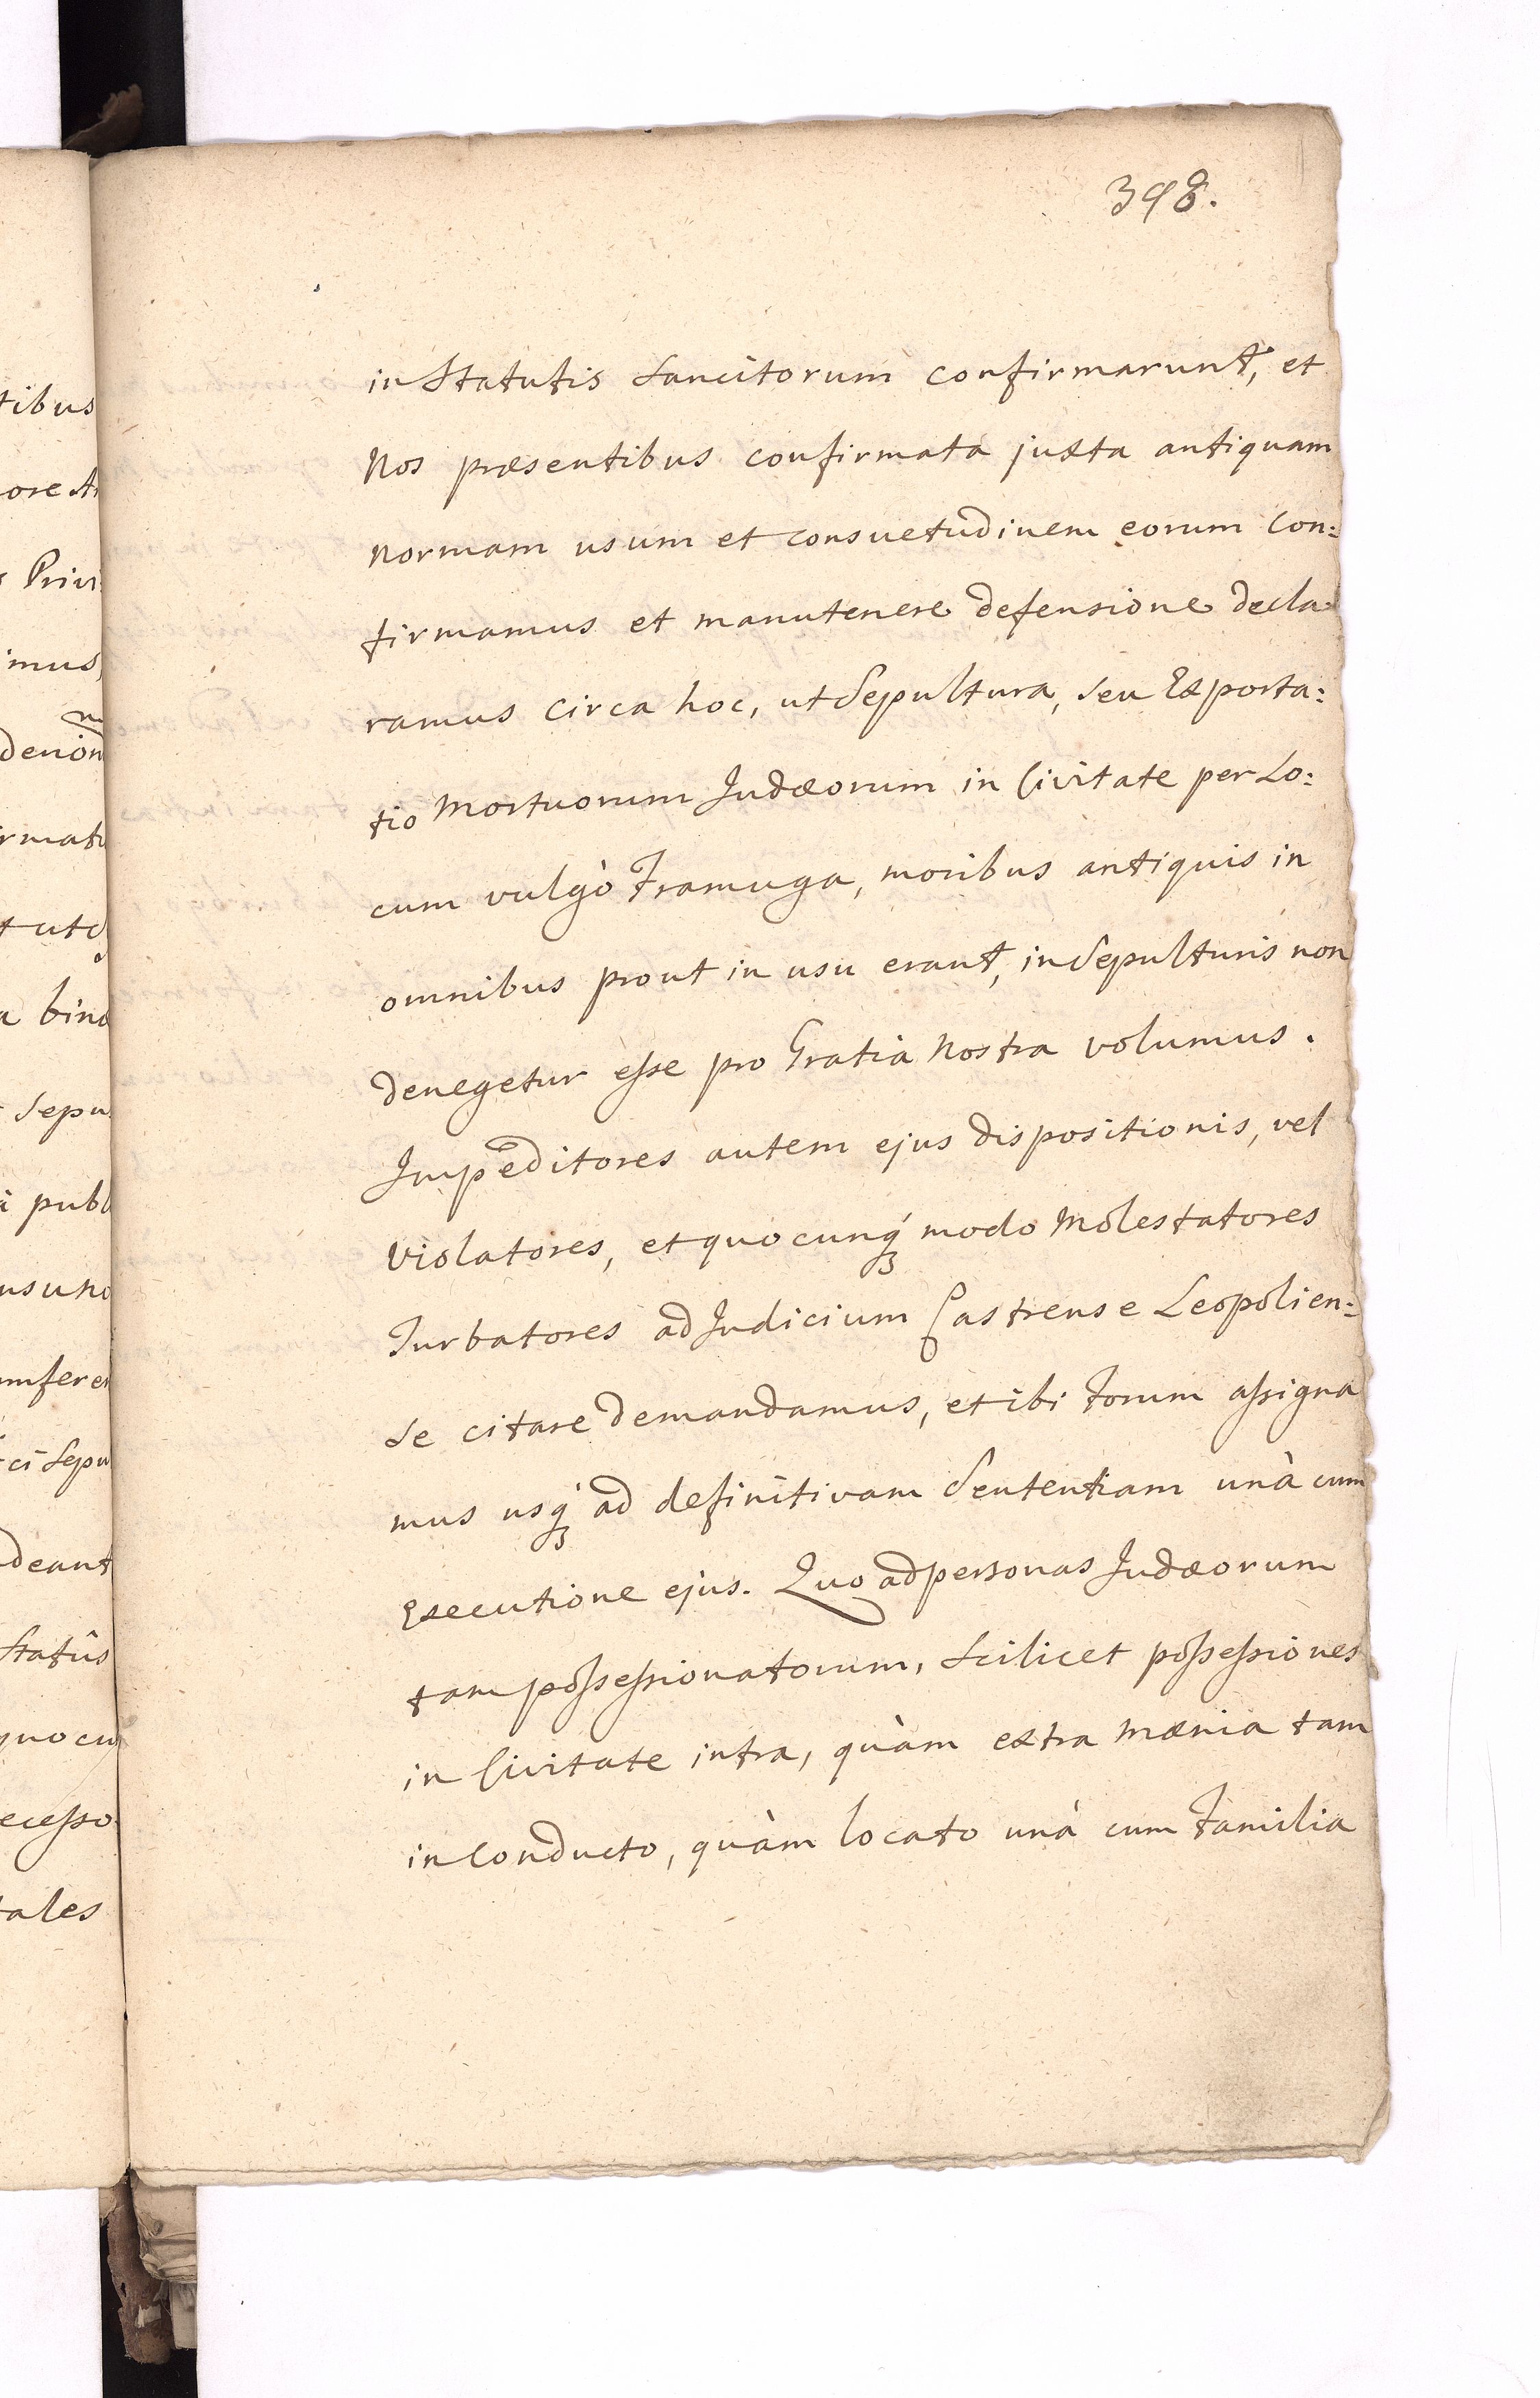 398.
in Statutis Sancitorum confirmarunt, et
Nos præsentibus confirmata juxta antiquam
Normam usum et consuetudinem eorum Con:
firmamus et manutenere defensione decla
ramus circa hoc, ut Sepultura, seu Exporta:
tio Mortuorum Judæorum in Civitate per Lo:
cum vulgò Framuga, moribus antiquis in
omnibus prout in usu erant, in Sepulturis non
denegetur eſse pro Gratia Nostra volumus.
Impeditores autem ejus dispositionis, vel
Violatores, et quocunqꝫ modo Molestatores
Turbatores ad Judicium Castrense Leopolien:
se citare demandamus, et ibi Forum aſsigna
mus usqꝫ ad definitivam Sententiam unà cum
Executione ejus. Quo ad personas Judæorum
tam poſseſsionatorum, Scilicet poſseſsiones
in Civitate intra, quàm extra Mænia tam
in Conducto, quàm locato unà cum Familia
tibus
ore A
Privi
imus,
rmat
a bin
Sepu
publ
deant
Statûs
quocu
eceſso
tales